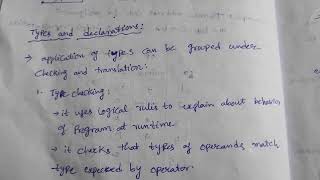 Types and declarations:
→ application of types can be grouped under
checking and translation:
1. Type checking:
→ it uses logical rules to explain about behavior
of program at runtime
→ it checks that types of operands match
type expected by operator.